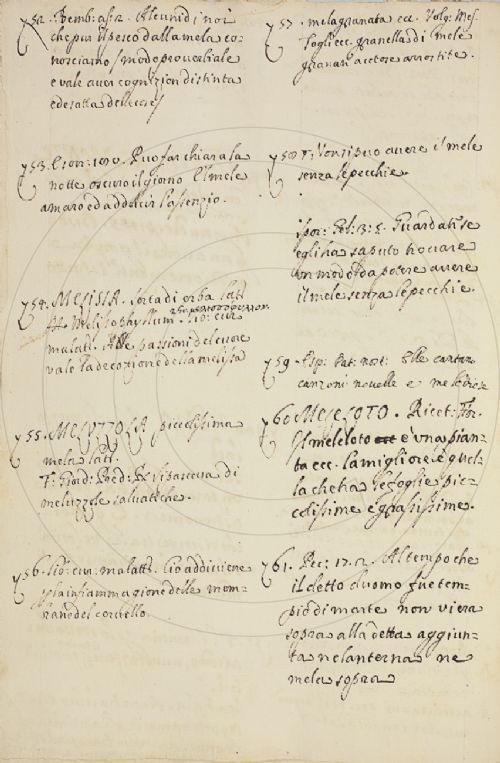 52. Bemb: asz. Alcun di noi
che pur il pesco dalla mela co-
nosciamo / modo proverbiale
e vale aver cognizion distinta
ed esatta delle cose /
53. 1070. Può far chiara la
notte oscuro il giorno E 'l mele
amaro ed addolcir l'assenzio.
54. MELISSA. Sorta di erba latt.
Melisophyllum
malatt. Alle passioni del cuore
vale la decozione della melissa
55. MELUZZOLA piccolissima
mela latt.
T: Giord: Pred: R: si pasceva di
meluzzole salvatiche.
56. lib: cur: malatt. Ciò addiviene
p la infiammagione delle mem-
brane del cervello.
57. melagranata ecc. Volg: Mes:
Togli ecc. granella di mele
granan' acetose arrostite.
58. T: Non si può avere il mele
senza le pecchie.
Spor: Gel: 3: 5. Guardati se
egli ha saputo trovare
un modo da potere avere
il mele senza le pecchie.
59. Esp: Pat: nost: Elle cantan
canzoni novelle e
60 MELILOTO. Ricet: Fior.
Il meliloto è una pian-
ta ecc. la migliore è quel-
la che ha le foglie pic-
colissime e grassissime.
61. Pec: 17. 2. Al tempo che
il detto duomo fue tem-
pio di marte non v'era
sopra alla detta aggiun-
ta ne lanterna ne
mela sopra